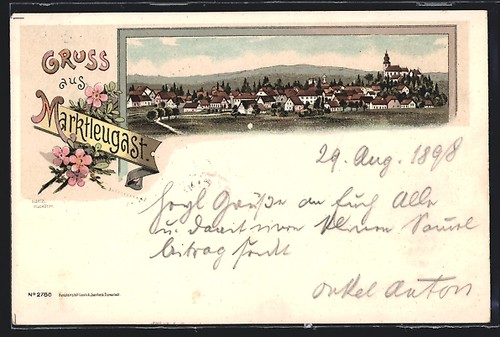 GRUSS
aus
Marktleugast.
29. Aug. 1898
Herzl Grüße an Euch Alle
u. damit einen kleinen
beitrag sendt
onkel Anton
No 2786